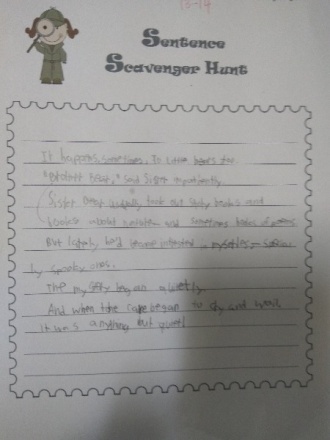 13-14
Sentence
Scavenger Hunt
It happens sometimes. To little bears too.
Bear," said Sister impatiently
Sister Bear took out books and
books about nature and sometimes books of poems.
But lately, he'd become interested in mysteries—
ly spooky ones.
The mystery began quietly.
And when the began to cry and wail,
it was anything but quiet!